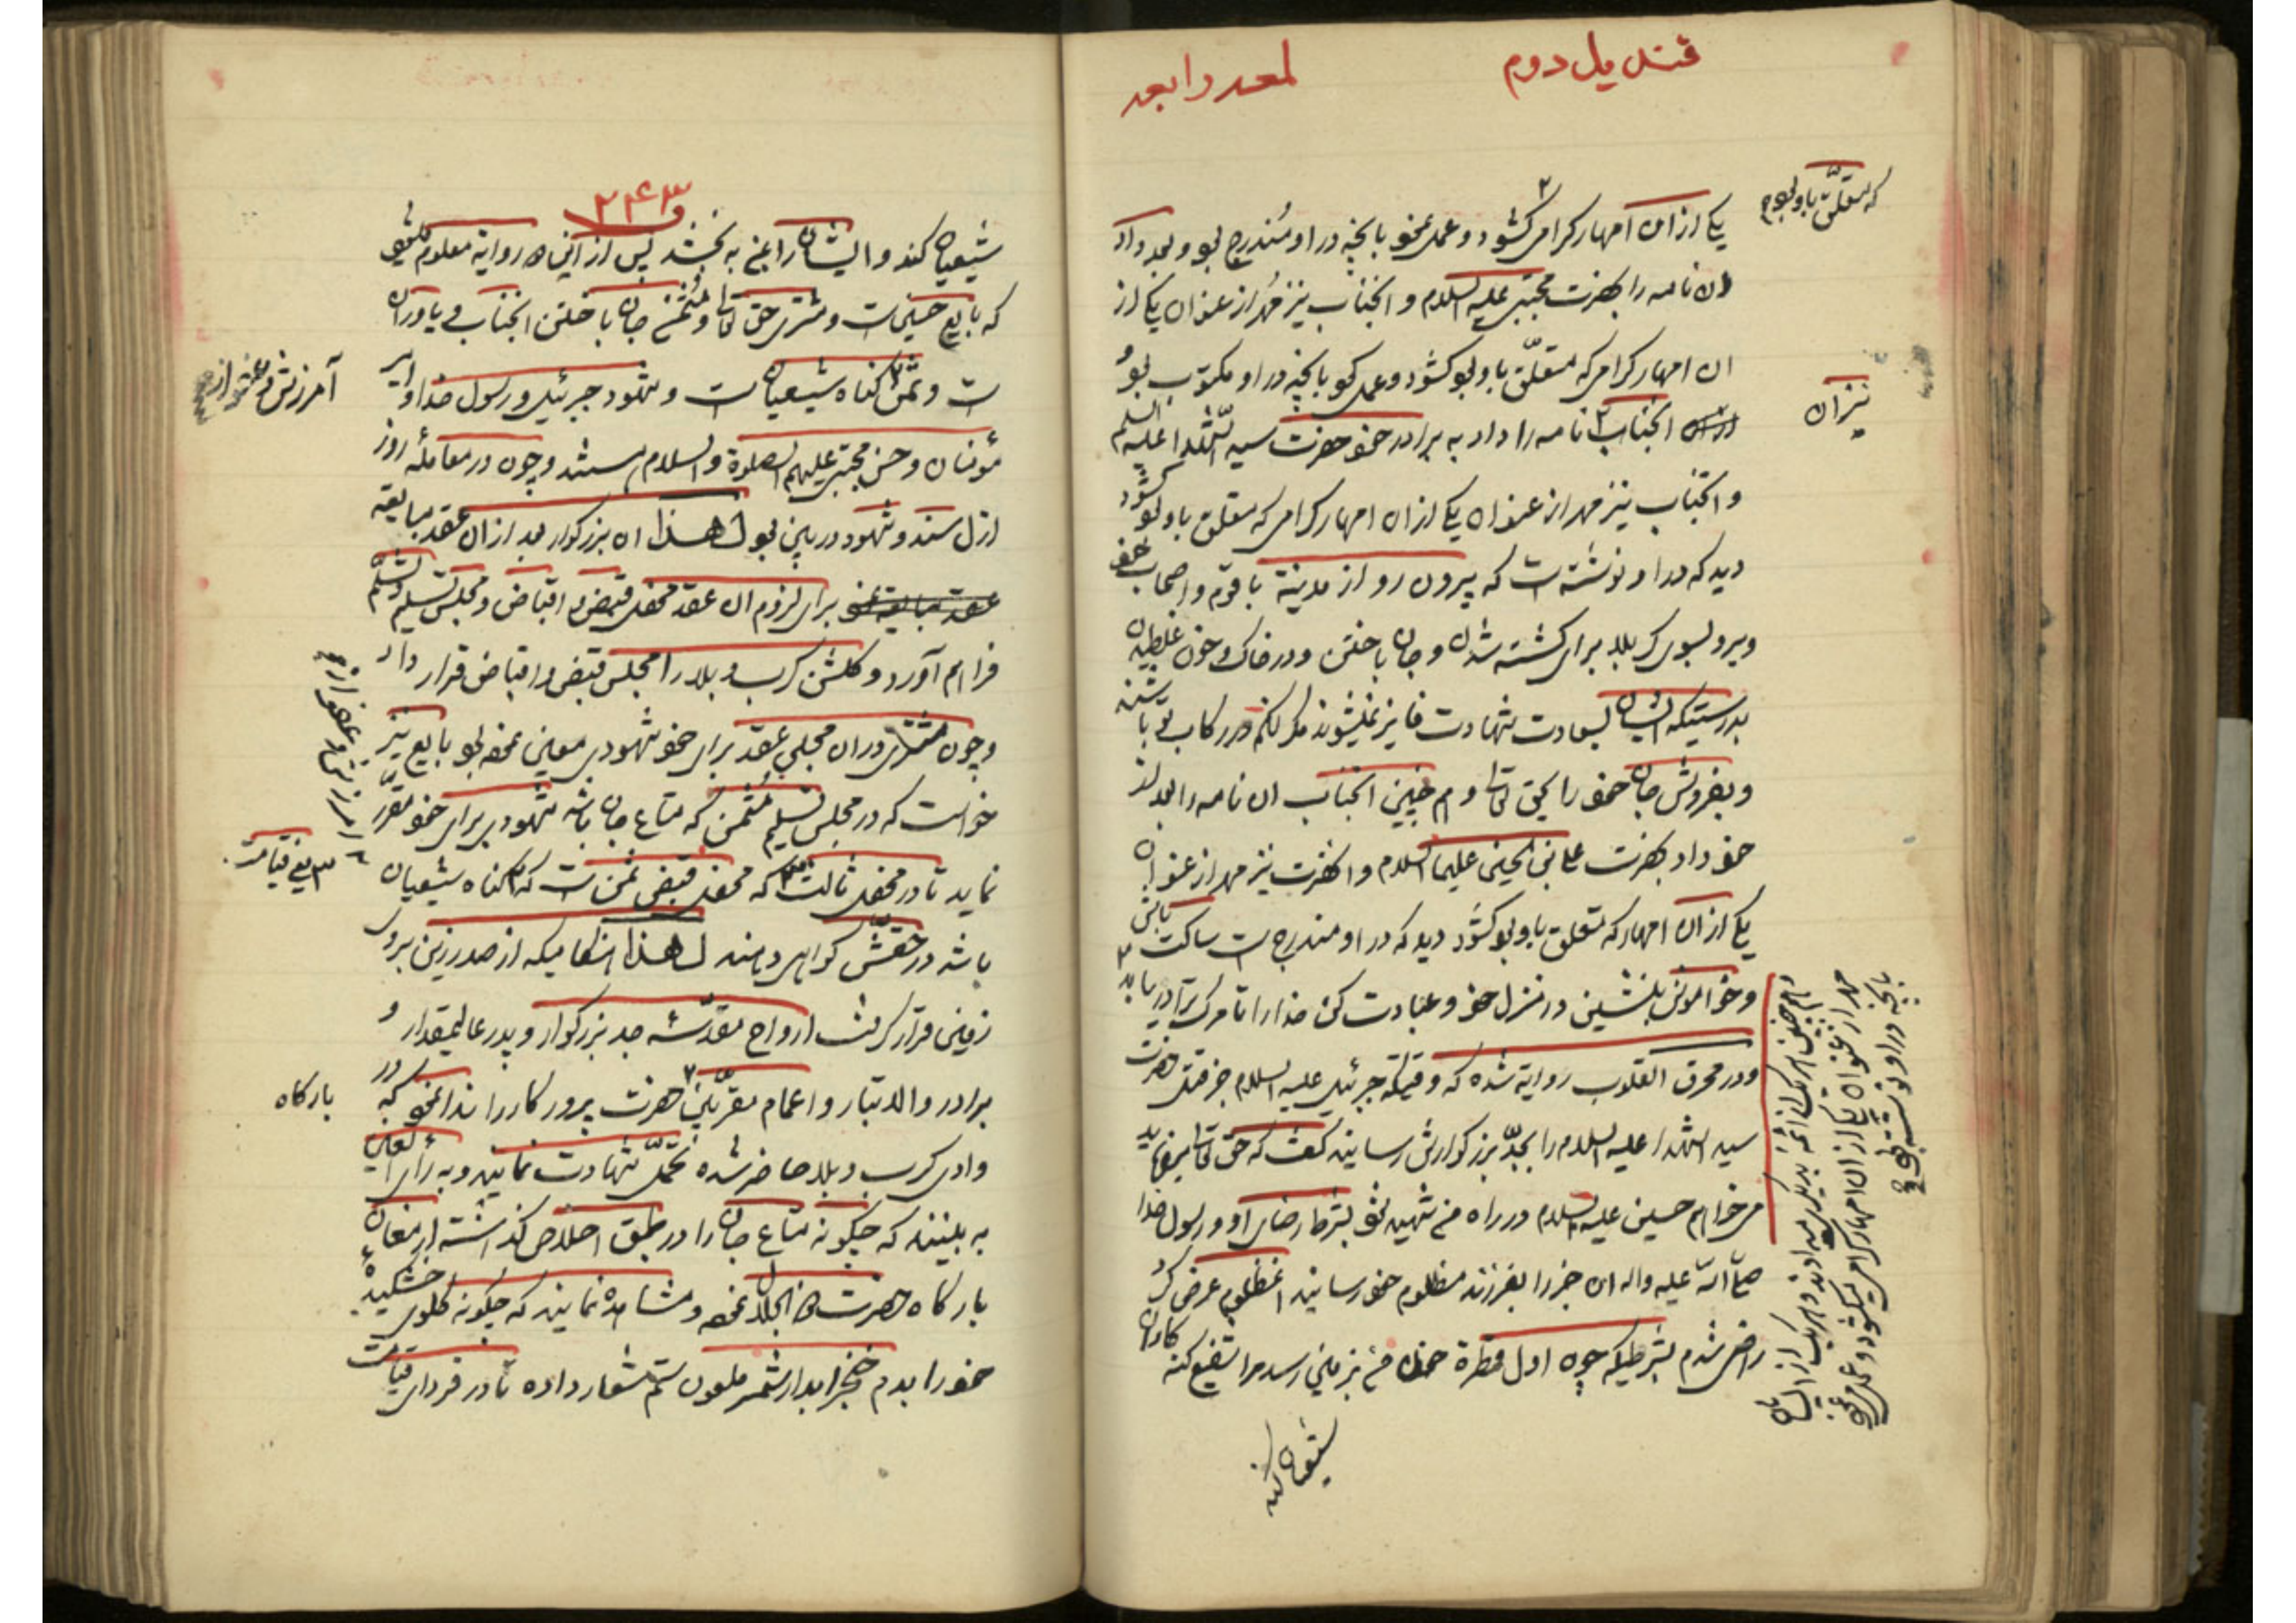 قندیل دوم
لمعه رابعه
که متعلق باو بود
یکی از ان امهار کرامی کشود و عمل نمود بانچه در او مندرج بود و بعد داد
ان نامه را بحضرت مجتبی علیه السلام و انجناب نیز مهر از عنوان یکی از
ان امهار کرام که متعلق باو بود کشود و عمل نمود بانچه در او مکتوب بود و
نیز ان
انجناب نامه را داد به برادر خود حضرت سید الشهدا علیه السلم
و انجناب نیز مهر از عنوان یکی از ان امهار کرام که متعلق باو بود کشود
دید که در او نوشته است که بیرون رو از مدینة با قوم و اصحاب خود
و برو بسوی کربلا برای کشته شدن و جان باختن و در خاک و خون غلطیدن
بدرستیکه ایشان بسعادت شهادت فایز نمیشوند مکر انکه در رکاب تو باشند
و بفروش جان خود را بحق تعالی و هم چنین انجناب ان نامه را بعد از
خود داد بحضرت علی بن الحسین علیهما السلام و انحضرت نیز مهر از عنوان
یکی از ان امهار که متعلق باو بود کشود دید که در او مندرج است ساکت باش
و خاموش بنشین در منزل خود و عبادت کن خدا را تا مرک ترا دریابد
و در محرق القلوب روایة شده که وقتیکه جبرئیل علیه السلام خبر قتل حضرت
سید الشهدا علیه السلام را بجد بزرکوارش رسانید کفت که حق تعالی میفرماید
می خواهم حسین علیه السلام در راه من شهید شود بشرط رضای او و رسول خدا
صلی الله علیه واله ان خبر را بفرزند مظلوم خود رسانید انمظلوم عرض کرد
راضی شدم بشرطیکه چون اول قطرة خون من بزمین رسد مرا شفیع کنه کاران
و هم چنین هر یک از ائمه بدیکری میدادند و هر یک از ایشان
مهر از عنوان یکی از ان امهار کرام میکشود و عمل می نمود
بانچه در او نوشته بود
شیعیان کند
۲۴۳
شیعیان کند و ایشان را بمن به بخشد پس از این دو روایة معلوم میشود
که بایع حسین است و مشتری حق تعالی و مثمن جان باختن انجناب و یاوران
است و ثمن کناه شیعیان است و شهود جبرئیل و رسول خدا و امیر
آمرزش و عفو از
مؤمنان و حسن مجتبی علیهم الصلوة والسلام هستند و چون در معاملهٔ روز
ازل سند و شهود در بین بود لهذا ان بزرکوار بعد از ان عقد مبایعه
برای لزوم ان عقد محفل قبض و اقباض و مجلس تسلیم و تسلم
فراهم آورد و کلشن کرب و بلا را مجلس قبض و اقباض قرار داد
و چون مشتری در ان مجلس عقد برای خود شهودی معین نموده بود بایع نیز
خواست که در مجلس تسلیم مثمن که متاع جان باشد شهودی برای خود مقرر
نماید تا در محفل ثالث که محفل قبض ثمن است که کناه شیعیان
یعنی قیامت
باشد در حقش کواهی دهند لهذا هنکامیکه از صدر زین بروی
زمین قرار کرفت ارواح مقدسهٔ جد بزرکوار و پدر عالیمقدار و
برادر والاتبار و اعمام مقربین حضرت پرورکار را ندا نمود که در
بارکاه
وادی کرب و بلا حاضر شده تحمل شهادت نمایند و به رأی العین
به بینند که چکونه متاع جان را در طبق اخلاص کذاشته ارمغان
بارکاه حضرت ذو الجلال نموده و مشاهده نمایند که چکونه کلوی خشکیدهٔ
خود را بدم خنجر ابدار شمر ملعون ستم شعار داده تا در فردای قیامت